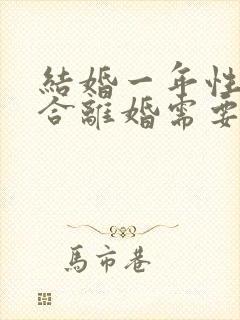 結婚一年性
合離婚需要
馬市巷